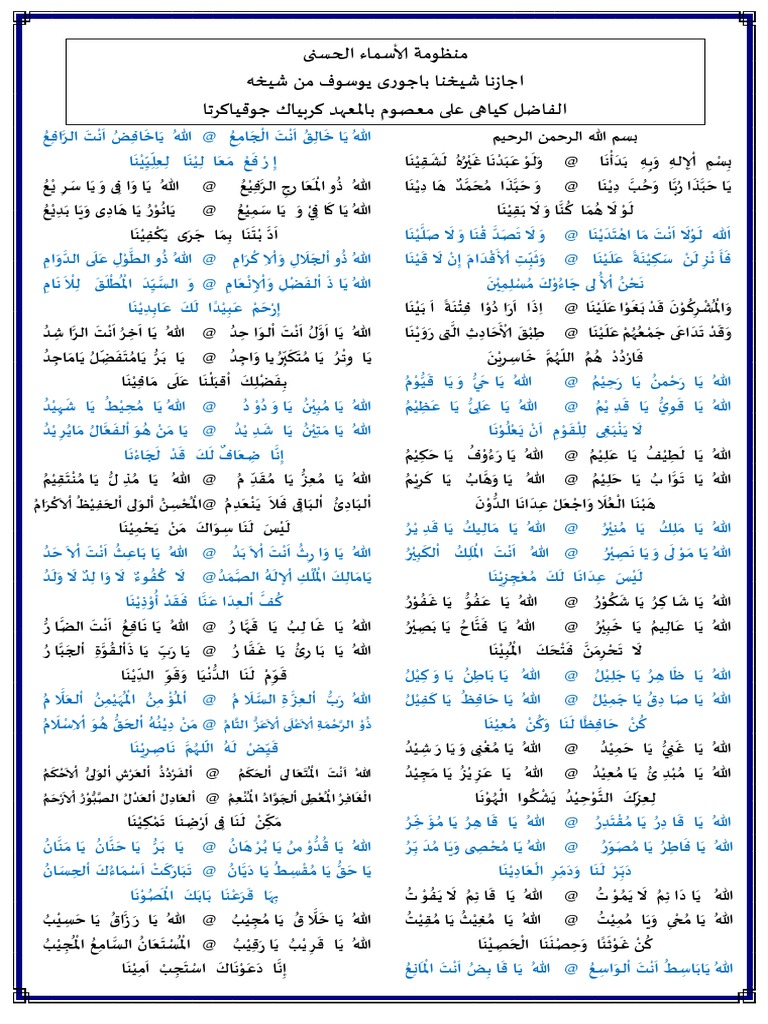 منظومة الأسماء الحسنى
اجازنا شيخنا باجورى يوسوف من شيخه
الفاضل كياهى على معصوم بالمعهد كربياك جوقياكرتا
بسم الله الرحمن الرحيم
بِسْمِ ألإلهِ وَبِهِ بَدَأْنَا @ وَلَوْ عَبَدْنَا غَيْرَهُ لَشَقِيْنَا
يَا حَبَّذَا رَبًّا وَحُبَّ دِيْنَا @ وَ حَبَّذَا مُحَمَّدٌ هَا دِيْنَا
لَوْ لَا هُمَا كُنَّا وَ لَا بَقِيْنَا
اَلله لَوْلَا أَنْتَ مَا اهْتَدَيْنَا @ وَ لَا تَصَدَّ قْنَا وَ لَا صَلَّيْنَا
فَأَ نْزِ لَنْ سَكِيْنَةً عَلَيْنَا @ وَثَبِّتِ أْلأَقْدَامَ إِنْ لَا قَيْنَا
نَحْنُ اْلأُ لى جَاءُوْكَ مُسْلِمِيْنَ
وَالْمُشْرِكُوْنَ قَدْ بَغَوْا عَلَيْنَا @ اِذَا اَرَا دُوْا فِتْنَةً اَ بَيْنَا
وَقَدْ تَدَاعَى جَمْعُهُمْ عَلَيْنَا @ طِبْقَ الْأَحَادِثِ الَّتى رَوَيْنَا
فَارْدُدْ هُمُ اللهُمَّ خَاسِرِيْنَ
اللهُ يَا رَحْمنُ يَا رَحِيْمُ @ اللهُ يَا حَيُّ وَ يَا قَيُّوْمُ
اللهُ يَا قَوِيُّ يَا قَدِ يْمُ @ اللهُ يَا عَلِىُّ يَا عَظِيْمُ
لَا يَنْبَغِى لِلْقَوْمِ اَنْ يَعْلُوْنَا
اللهُ يَا لَطِيْفُ يَا عَلِيْمُ @ اللهُ يَا رَءُوْفُ يَا حَكِيْمُ
اللهُ يَا تَوَّابُ يَا حَلِيْمُ @ اللهُ يَا وَهَّابُ يَا كَرِيْمُ
هَبْنَا الْعُلَا وَاجْعَلْ عِدَانَا الدُّوْنَ
اللهُ يَا مَلِكُ يَا مُنِيْرُ @ اللهُ يَا مَالِيكُ يَا قَدِ يْرُ
اللهُ يَا مَوْ لَى وَ يَا نَصِيْرُ @ اللهُ أَنْتَ الْمَلِكُ اْلكَبِيْرُ
لَيْسَ عِدَانَا لَكَ مُعْجِزِيْنَا
اللهُ يَا شَا كِرُ يَا شَكُوْرُ @ اللهُ يَا عَفُوُّ يَا غَفُوْرُ
اللهُ يَا عَالِيمُ يَا خَبِيْرُ @ اللهُ يَا فَتَّاحُ يَا بَصِيْرُ
لَا تَحْرِمَنَّ فَتْحَكَ الْمُبِيْنَا
اللهُ يَا ظَا هِرُ يَا جَلِيْلُ @ اللهُ يَا بَاطِنُ يَا وَ كِيْلُ
اللهُ يَا صَا دِقُ يَا جَمِيْلُ @ اللهُ يَا حَافِظُ يَا كَفِيْلُ
كُنْ حَافِظًا لَنَا وَكُنْ مُعِيْنَا
اللهُ يَا غَنِيُّ يَا حَمِيْدُ @ اللهُ يَا مُغْنِى وَ يَا رَ شِيْدُ
اللهُ يَا مُبْدِ ئُ يَا مُعِيْدُ @ اللهُ يَا عَزِ يْزُ يَا مَجِيْدُ
لِعِزِكَ التَّوْحِيْدُ يَشْكُوا اْلهُوْنَا
اللهُ يَا قَا دِرُ يَا مُقْتَدِرُ @ اللهُ يَا قَا هِرُ يَا مُوَ خِّرُ
اللهُ يَا فَاطِرُ يَا مُصَوِّرُ @ اللهُ يَا مُحْصِى وَيَا مُدَ بِّرُ
دَبِّرْ لَنَا وَدَمِّرِ الْعَادِيْنَا
اللهُ يَا دَا ئِمُ لَا يَمُوْ تُ @ اللهُ يَا قَا ئِمُ لَا يَفُوْ تُ
اللهُ يَا مُحْىِ وَيَا مُمِيْتُ @ اللهُ يَا مُغِيْثُ يَا مُقِيْتُ
كُنْ غَوْثَنَا وَحِصْنَنَا الْحَصِيْنَا
اللهُ يَابَاسِطُ أَنْتَ اْلوَاسِعُ @ اللهُ يَا قَا بِضُ أَنْتَ الْمَانِعُ
اللهُ يَا خَالِقُ أَنْتَ الْجَامِعُ @ اللهُ يَاخَافِضُ أَنْتَ الرَّافِعُ
إِرْ فَعْ مَعَا لِيْنَا لِعِلِّيِّيْنَا
اللهُ ذُو الْمَعَا رِجِ الرَّفِيْعُ @ اللهُ يَا وَا فِى وَ يَا سَرِ يْعُ
اللهُ يَا كَا فِيْ وَ يَا سَمِيْعُ @ يَانُوْرُ يَا هَادِى وَيَا بَدِيْعُ
اَدَّ بْتَنَا بِمَا جَرَى يَكْفِيْنَا
اللهُ ذُو اْلجَلَالِ وَاْلا كْرَامِ @ اللهُ ذُو الطَّوْلِ عَلَى الدَّوَامِ
اللهُ يَا ذَ اْلفَضْلِ وَاْلإنْعَامِ @ وَ السَّيِّدَ الْمُطْلَقَ لِلْاَ نَامِ
إِرْحَمْ عَبِيْدًا لَكَ عَابِدِيْنَا
اللهُ يَا أَوَّلُ أَنْتَ اْلوَا حِدُ @ اللهُ يَا آخِرُ أَنْتَ الرَّا شِدُ
يَا وِتْرُ يَا مُتَكَبِّرُ يا وَاجِدُ @ يَا بَرُّ يَامُتَفَضِّلُ يَامَاجِدُ
بِفَضْلِكَ أَقْبِلْنَا عَلَى مَافِيْنَا
اللهُ يَا مُبِيْنُ يَا وَدُوْ دُ @ اللهُ يَا مُحِيْطُ يَا شَهِيْدُ
اللهُ يَا مَتِيْنُ يَا شَدِ يْدُ @ يَا مَنْ هُوَ اْلفَعَّالُ مَايُرِ يْدُ
إِنَّا ضِعَافٌ لَكَ قَدْ لَجَاءْنَا
اللهُ يَا مُعِزُّ يَا مُقَدِّ مُ @ اللهُ يَا مُذِلُّ يَا مُنْتَقِيْمُ
اْلبَادِئُ اْلبَاقِى فَلاَ يَنْعَدِمُ @اَلْمُحْسِنُ اْلوَلِى اْلحَفِيْظُ اْلأَكْرَامُ
لَيْسَ لَنَا سِوَاكَ مَنْ يَحْمِيْنَا
اللهُ يَا وَا رِثُ أَنْتَ اْلأَ بَدُ @ اللهُ يَا بَاعِثُ أَنْتَ اْلأَ حَدُ
يَامَالِكَ الْمُلْكِ اْلإِلَهُ الصَّمَدُ@ لَا كُفُوءٌ لَا وَا لِدٌ لَا وَلَدُ
كُفَّ اْلعِدَا عَنَّا فَقَدْ أُوْذِيْنَا
اللهُ يَا غَا لِبُ يَا قَهَّا رُ @ اللهُ يَا نَافِعُ أَنْتَ الضَّا رُّ
اللهُ يَا بَا رِئُ يَا غَفَّا رُ @ يَا رَبِّ يَا ذَاْلقُوَّةِ اْلجَبَّا رُ
قَوِّمْ لَنَا الدُّنْيَا وَقَوِّ الدِّيْنَا
اللهُ رَبُّ اْلعِزَّةِ السَّلَا مُ @ اَلْمُؤْ مِنُ الْمُهَيْمِنُ اْلعَلَّا مُ
ذُوْ الرَّحْمَةِ اْلأَعْلَى اْلأَعَزُّ التَّامُ @ مَنْ دِيْنُهُ اْلحَقُّ هُوَ اْلاسْلَامُ
قَيِّضْ لَهُ اللهُمَّ نَاصِرِيْنَا
اللهُ أَنْتَ الْمُتَعَالى اْلحَكَمُ @ اَلْفَرْدُذُ اْلعَرْشِ اْلوَلِىُّ اْلأَحْكَمُ
الْغَافِرُ الْمُعْطِى اْلجَوَّادُ الْمُنْعِمُ @ اَلْعَادِلُ اْلعَدْلُ الصَّبُوْرُ اْلأَرْحَمُ
مَكِّنْ لَنَا فى اَرْضِنَا تَمْكِيْنَا
اللهُ يَا قُدُّوْ سُ يَا بُرْ هَانُ @ يَا بَرُّ يَا حَنَّانُ يَا مَنَّانُ
يَا حَقُّ يَا مُقْسِطُ يَا دَيَّانُ @ تَبَارَكْتَ أَسْمَاءُكَ اْلحِسَانُ
بِهَا قَرَعْنَا بَابَكَ الْمَصُوْنَا
اللهُ يَا خَلَّا قُ يَا مُجِيْبُ @ اللهُ يَا رَزَّاقُ يَا حَسِيْبُ
اللهُ يَا قَرِيْبُ يَا رَقِيْبُ @ اَلْمُسْتَعَانُ السَّامِعُ الْمُجِيْبُ
إِنَّا دَعَوْنَاكَ اسْتَجِبْ اَمِيْنَا